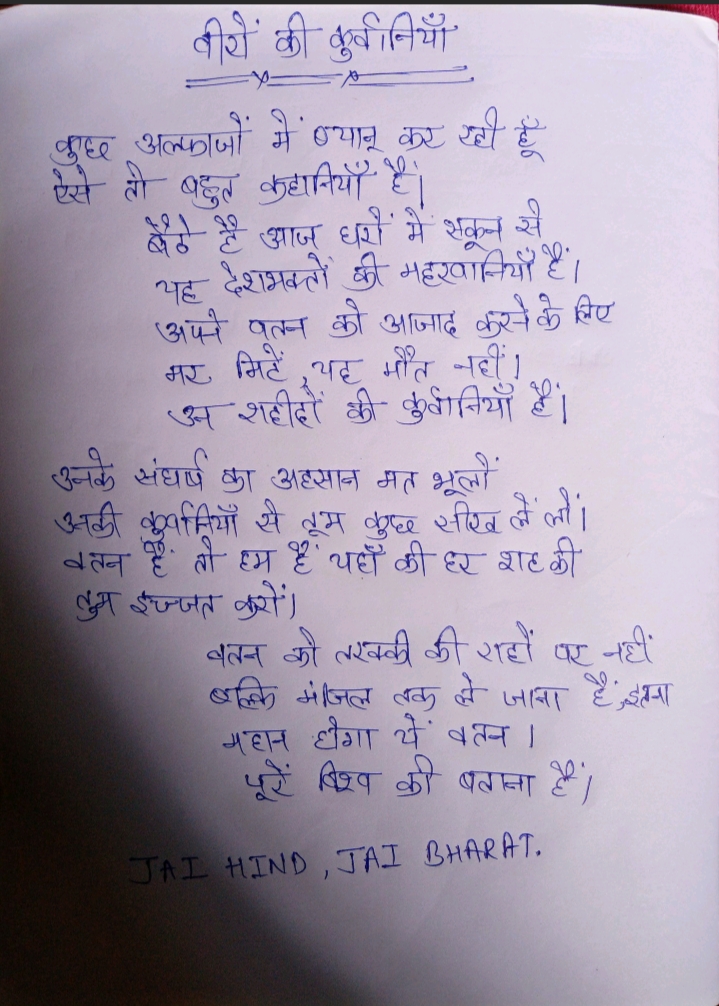 वीरों की कुर्वानियाँ
कुछ अल्फाजों में ब्यान् कर रही हूँ
ऐसे तो बहुत कहानियाँ हैं।
बैठे है आज घरों में सकून से
यह देशभक्तों की महरवानियाँ हैं।
अपने वतन को आजाद करने के लिए
मर मिटें, यह मौत नहीं।
उन शहीदों की कुर्वानियाँ हैं।
उनके संघर्ष का अहसान मत भूलों
उनकी कुर्वानियाँ से तूम कुछ सीख लें लों।
वतन हैं तो हम हैं यहाँ की हर शह की
तुम इज्जत करों।
वतन को तरक्की की राहों पर नहीं
बल्कि मंजिल तक ले जाना हैं, इतना
महान होगा यें वतन।
पूरें विश्व को बताना हैं।
JAI HIND, JAI BHARAT.